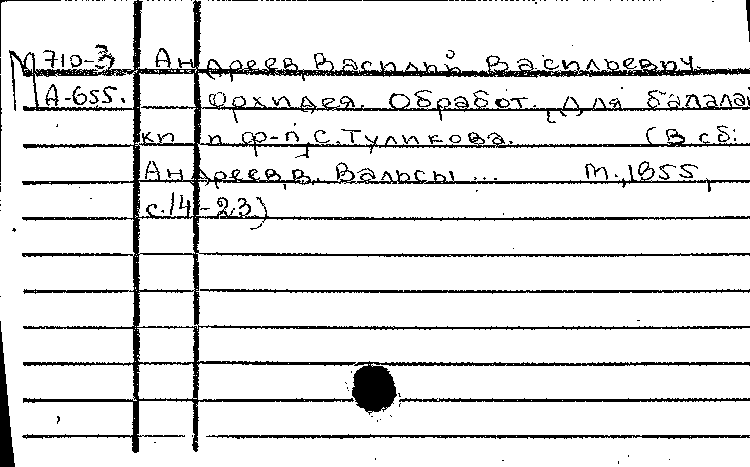 М710-3 Андреев, Василий Васильевич.
А-655. Орхидея. Обработ. для балалай
ки и ф-п, С. Туликова. (В сб:
Андреев, В. Вальсы... М., 1855,
с. 14-23)